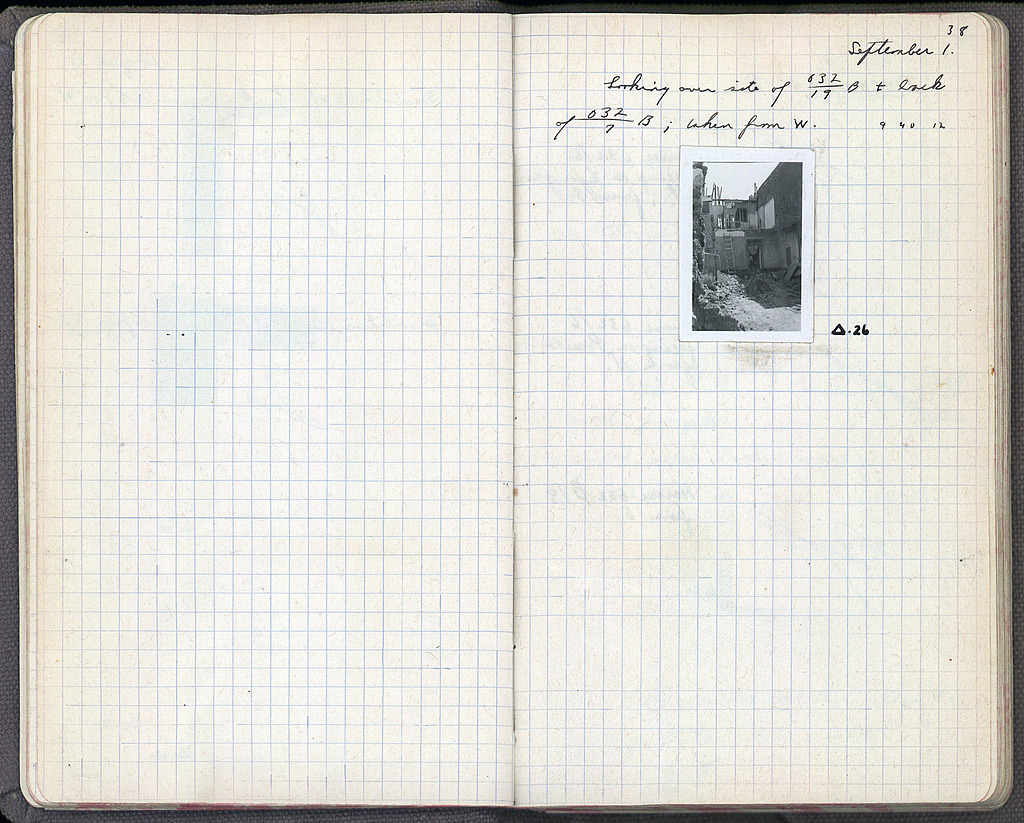 38
September 1.
Looking over site of 032/19 B + back
of 032/7 B ; taken from W. 9 40 12
Δ.26